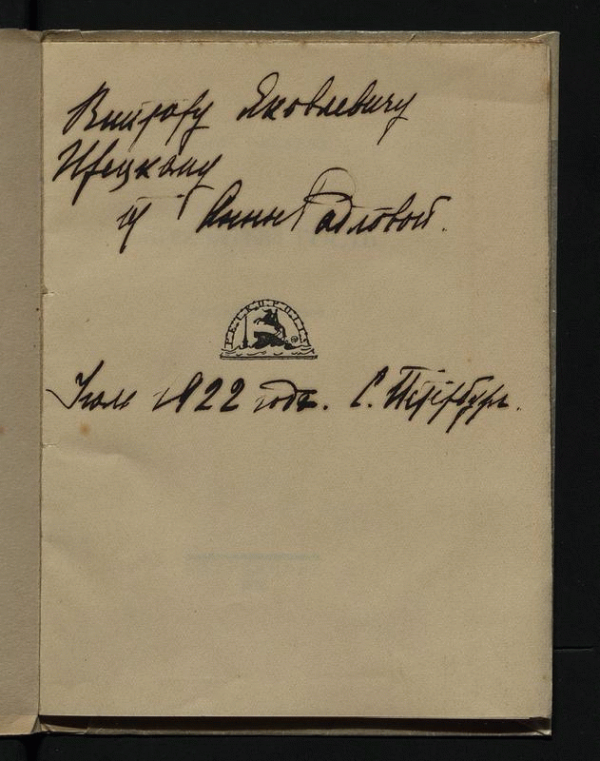 Виктору Яковлевичу
Ирецкому
от Анны Радловой.
PETROPOLIS
Июль 1922 года. С. Петербург.